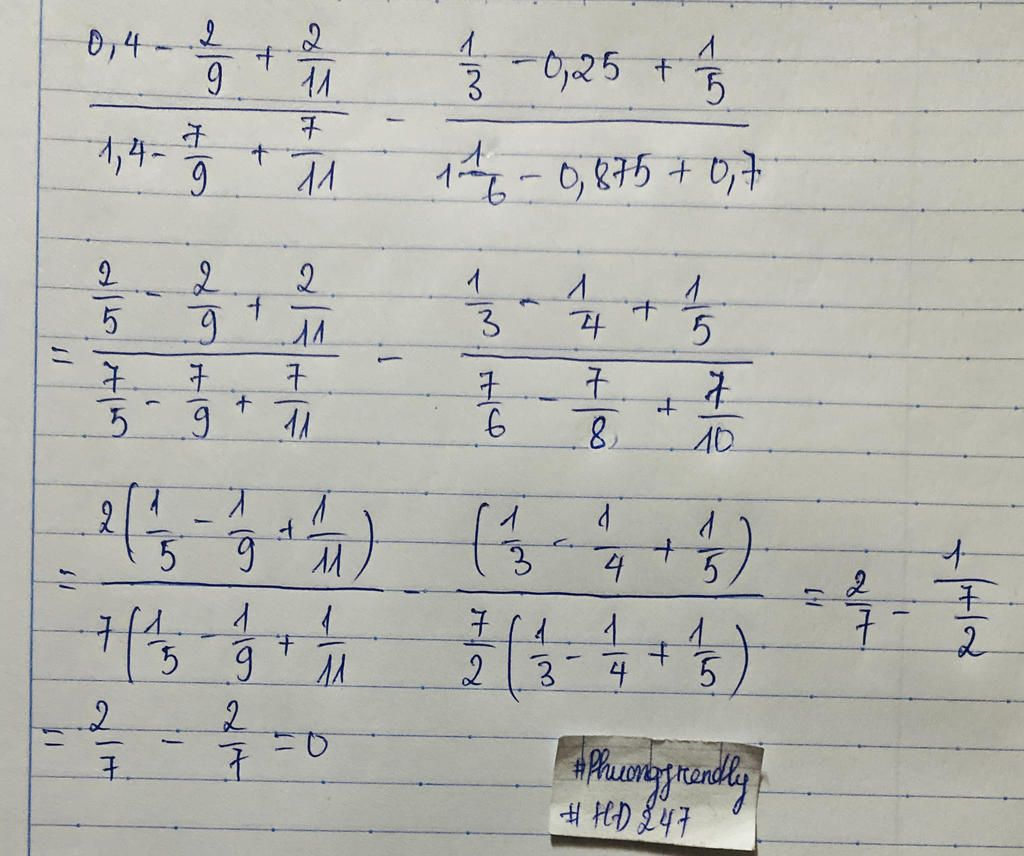 0,4 - 2/9 + 2/11 / 1,4 - 7/9 + 7/11 - 1/3 - 0,25 + 1/5 / 1 1/6 - 0,875 + 0,7
= 2/5 - 2/9 + 2/11 / 7/5 - 7/9 + 7/11 - 1/3 - 1/4 + 1/5 / 7/6 - 7/8 + 7/10
= 2(1/5 - 1/9 + 1/11) / 7(1/5 - 1/9 + 1/11 - (1/3 - 1/4 + 1/5) / 7/2 (1/3 - 1/4 + 1/5) = 2/7 - 1 / 7/2
= 2/7 - 2/7 = 0
#Phuongfrendly
# HD 247